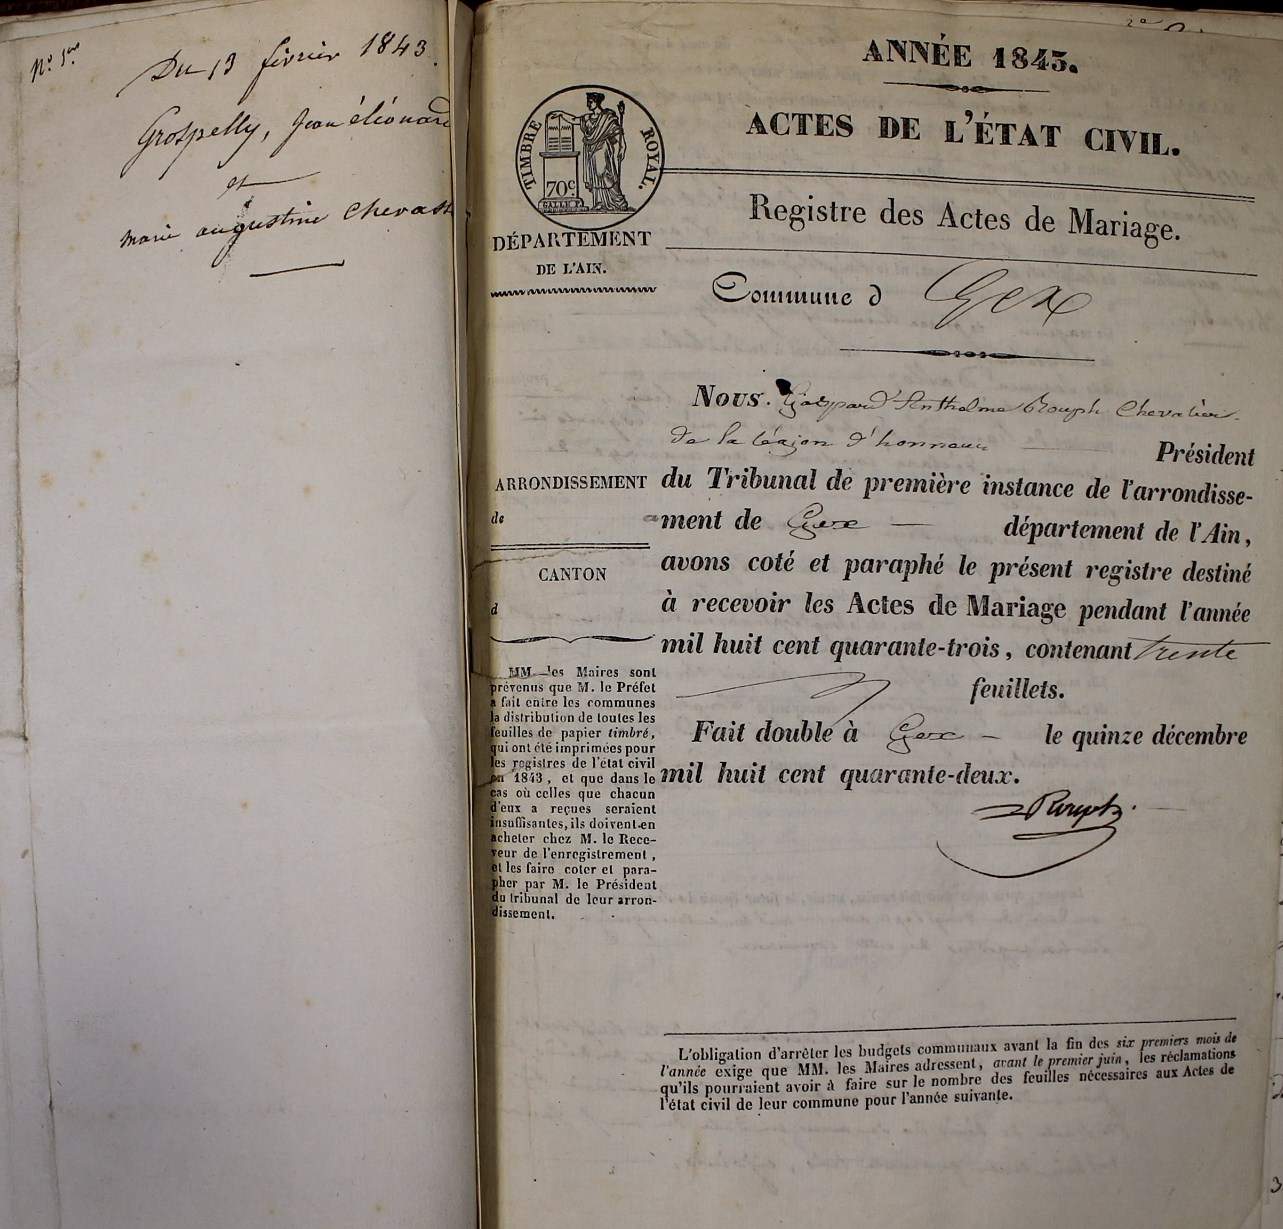 N° 5
Du 13 février 1843.
Grospelly, Jean éléonard
et
marie augustine Chevass
ANNÉE 1843.
ACTES DE L'ÉTAT CIVIL.
TIMBRE ROYAL.
70c.
DÉPARTEMENT
DE L'AIN.
Registre des Actes de Mariage.
Commune d Gex
Nous. Gaspard Anthelme Rouph Chevalier
de la légion d'honneur Président
du Tribunal de première instance de l'arrondisse-
ment de Gex département de l'Ain,
avons coté et paraphé le présent registre destiné
à recevoir les Actes de Mariage pendant l'année
mil huit cent quarante-trois, contenant trente
feuillets.
Fait double à Gex le quinze décembre
mil huit cent quarante-deux.
Rouph
ARRONDISSEMENT
de
CANTON
d
MM. les Maires sont
prévenus que M. le Préfet
a fait entre les communes
la distribution de toutes les
feuilles de papier timbré,
qui ont été imprimées pour
les registres de l'état civil
en 1843, et que dans le
cas où celles que chacun
d'eux a reçues seraient
insuffisantes, ils doivent en
acheter chez M. le Rece-
veur de l'enregistrement,
et les faire coter et para-
pher par M. le Président
du tribunal de leur arron-
dissement.
L'obligation d'arrêter les budgets communaux avant la fin des six premiers mois de
l'année exige que MM. les Maires adressent, avant le premier juin, les réclamations
qu'ils pourraient avoir à faire sur le nombre des feuilles nécessaires aux Actes de
l'état civil de leur commune pour l'année suivante.